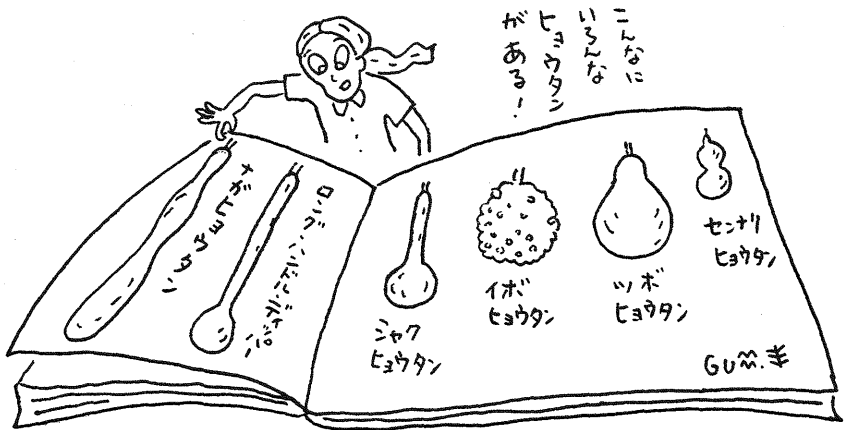 こんなに
いろんな
ヒョウタン
がある!
センナリ
ヒョウタン
ツボ
ヒョウタン
イボ
ヒョウタン
シャク
ヒョウタン
ロング・ハンドル・ディッパー
ナガヒョウタン